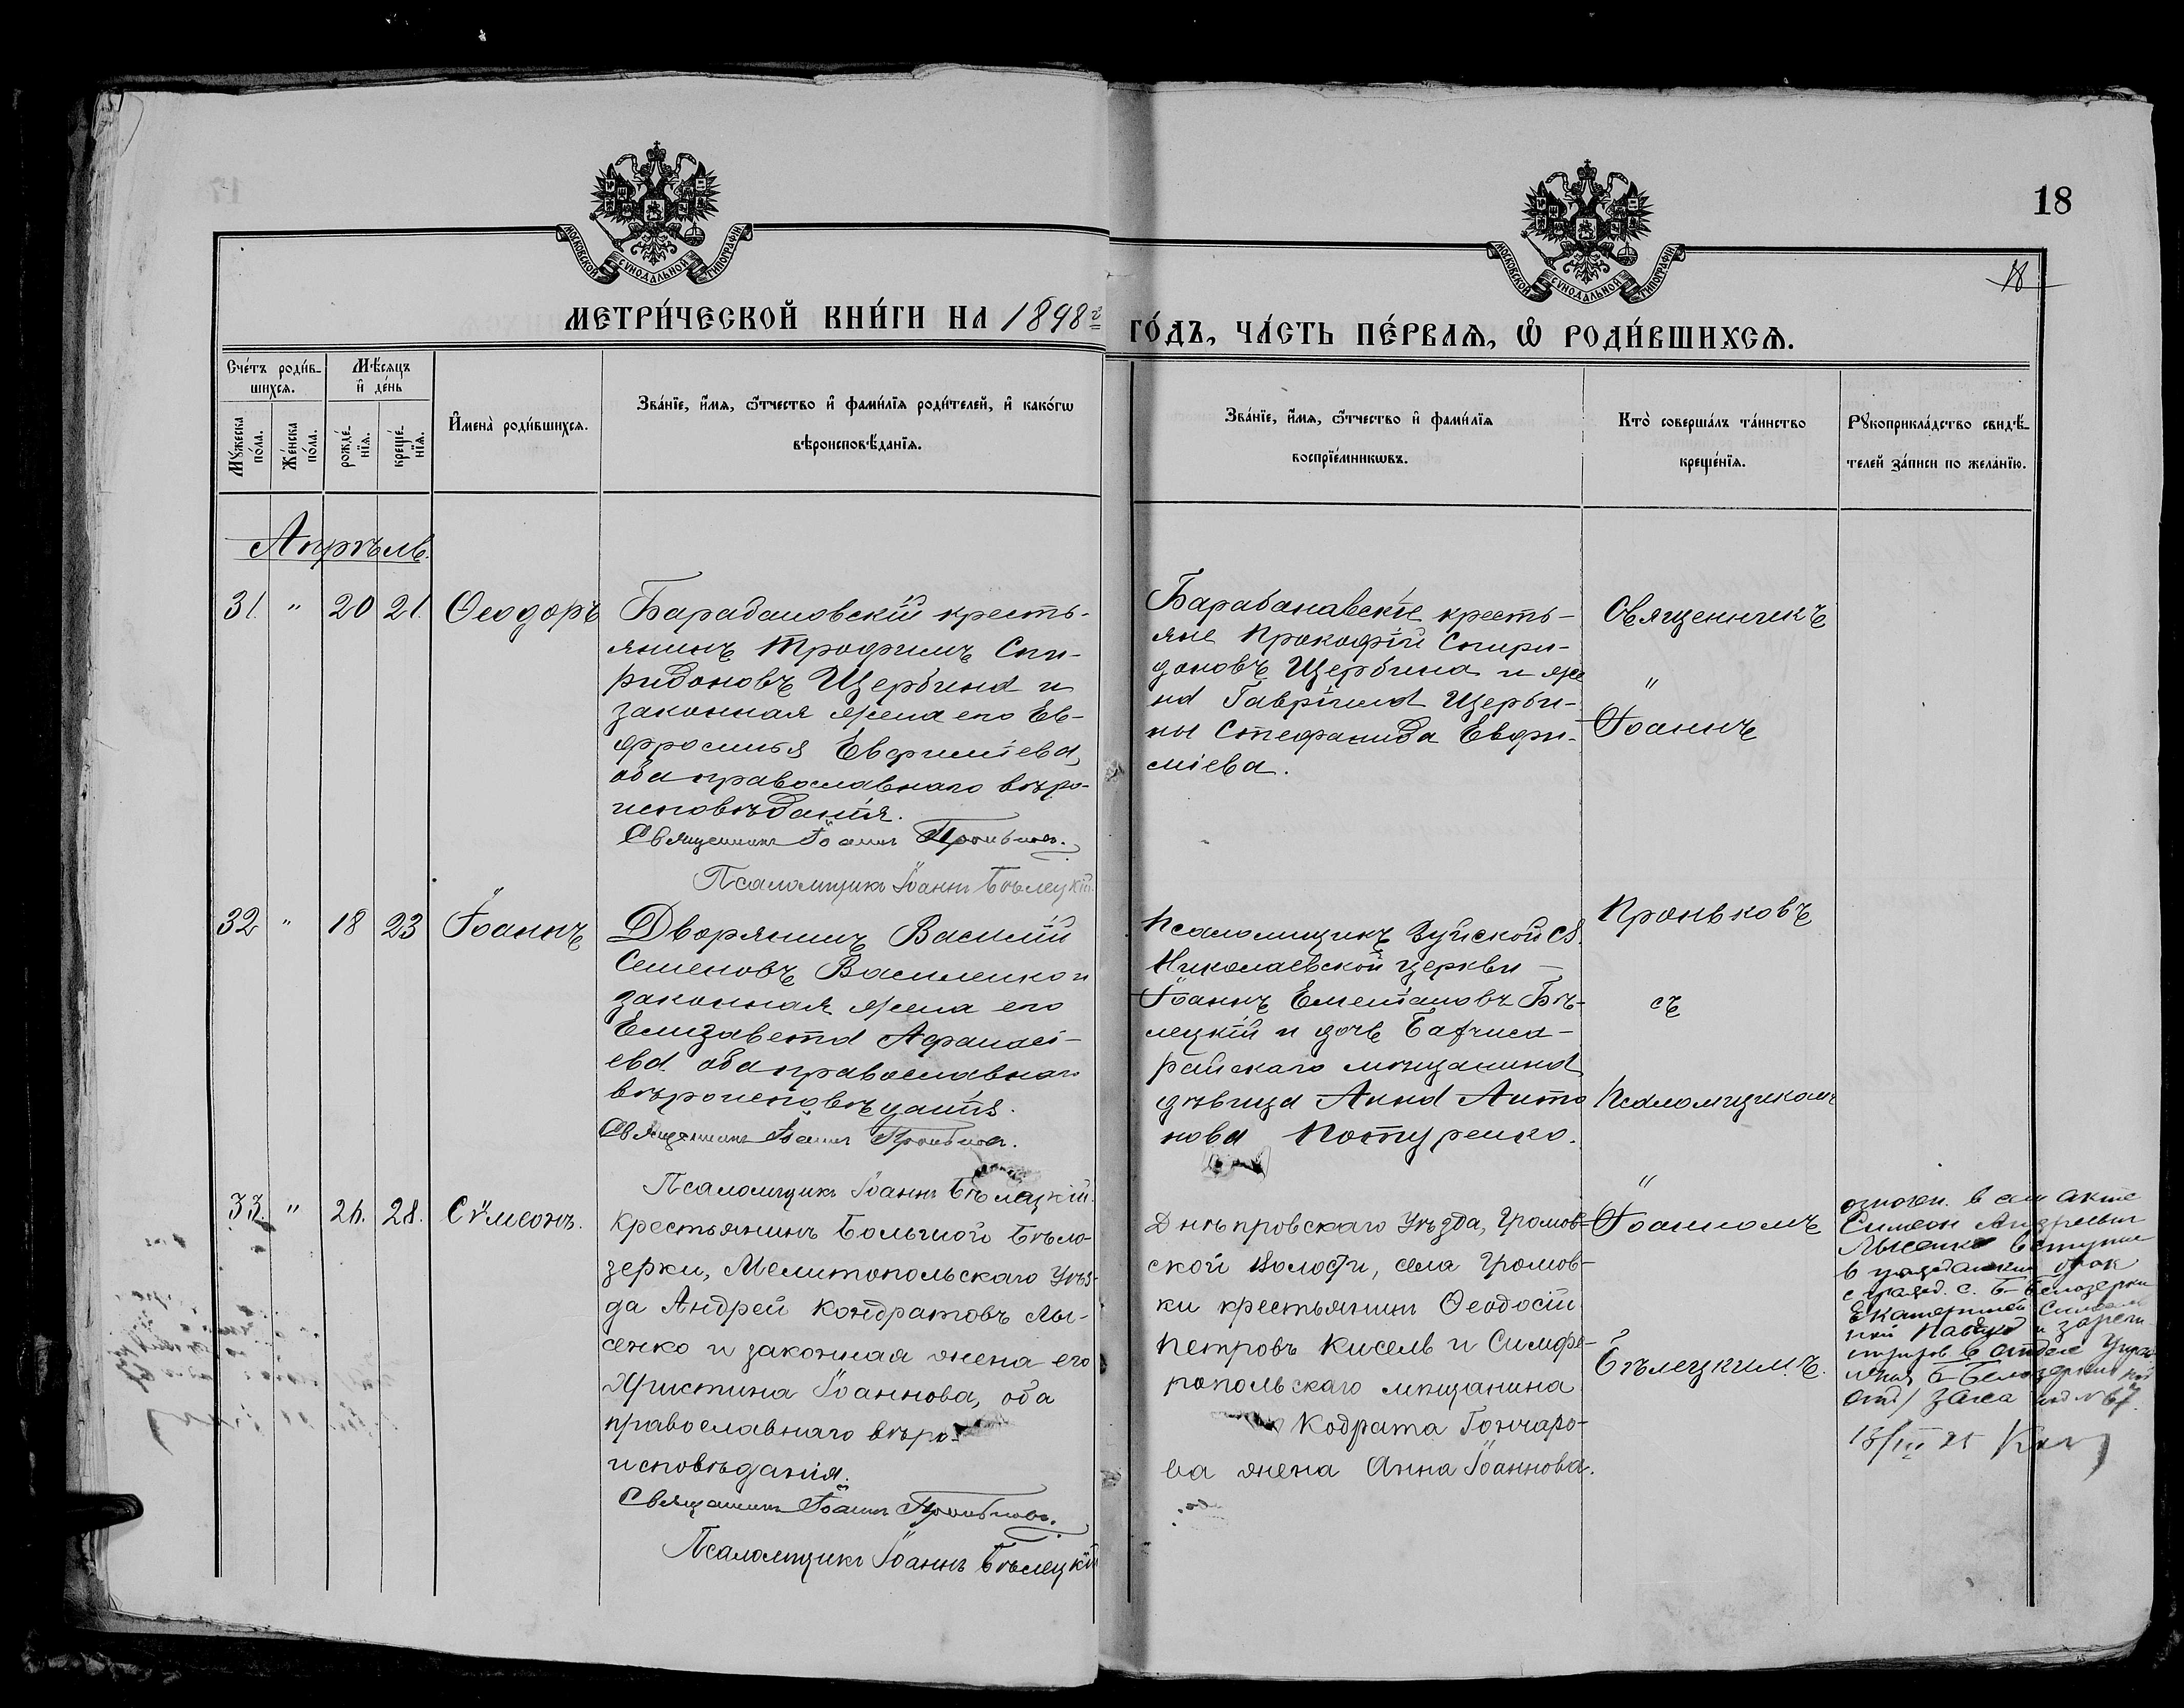 18
МОСКОВСКОЙ СѴНОДАЛЬНОЙ ТИПОГРАФІИ
МОСКОВСКОЙ СѴНОДАЛЬНОЙ ТИПОГРАФІИ
18
МЕТРИ́ЧЕСКОЙ КНИ́ГИ НА 1898 г
ГО́ДЪ, ЧА́СТЬ ПЕ́РВАѦ, Ѽ РОДИ́ВШИХСѦ.
Сче́тъ роди́в-
шихсѧ.
Мѣ́сѧцъ
и҆ де́нь
Мꙋ́жеска по́ла.
Же́нска по́ла.
рожде́-
нїѧ.
креще́-
нїѧ.
И҆мена̀ роди́вшихсѧ.
Зва́нїе, и҆́мѧ, ѻ҆́тчество и҆ фами́лїѧ роди́телей, и҆ како́гѡ
вѣроисповѣ́данїѧ.
Зва́нїе, и҆́мѧ, ѻ҆́тчество и҆ фами́лїѧ
воспрїе́мникѡвъ.
Кто̀ соверша́лъ та́инство
креще́нїѧ.
Рꙋкоприкла́дство свидѣ́-
телей за́писи по жела́нїю.
Апрѣль.
31. " 20 21. Ѳеодоръ
Барабановскій кресть-
янинъ Трофимъ Спи-
ридоновъ Щербина и
законная жена его Ев-
фросинья Евфиміева,
оба православнаго вѣро-
исповѣданія.
Священникъ Іоаннъ Проньковъ.
Псаломщикъ Іоаннъ Бѣлецкій.
Барабанавскіе кресть-
яне Прокофій Спири-
доновъ Щербина и же
на Гавріила Щерби-
ны Стефанида Евфи-
міева.
Священникъ
"
Іоаннъ
32 " 18 23 Іоаннъ
Дворянинъ Василій
Семеновъ Василенко и
законная жена его
Елизавета Афанасі-
ева оба православнаго
вѣроисповѣданія.
Священникъ Іоаннъ Проньковъ.
Псаломщикъ Іоаннъ Бѣлецкій.
Псаломщикъ Зуйской Св.
Николаевской церкви —
Іоаннъ Емеліановъ Бѣ-
лецкій и дочь Бахчиса-
райскаго мѣщанина
дѣвица Анна Анто
нова Потуренко.
Проньковъ
съ
Псаломщикомъ
"
33. " 26. 28. Сѵмеонъ.
Крестьянинъ Большой Бѣло-
зерки, Мелитопольскаго Уѣз-
да Андрей Кондратовъ Лы-
сенко и законная жена его
Христина Іоаннова, оба
православнаго вѣро-
исповѣданія.
Священникъ Іоаннъ Проньковъ.
Псаломщикъ Іоаннъ Бѣлецкій
Днѣпровскаго Уѣзда, Громов-
ской Волости, села Громов-
ки крестьянинъ Ѳеодосій
Петровъ Кисель и Симфе-
ропольскаго мѣщанина
Кодрата Гончаро-
ва жена Анна Іоаннова.
Іоанномъ
Бѣлецкимъ.
в сим акте
Симеон Андреевич
Лысенко вступил
в гражданский брак
с гражд. с. Б-Белозерки
Екатериной
в отделе
Б-Белозерской
13/III 25